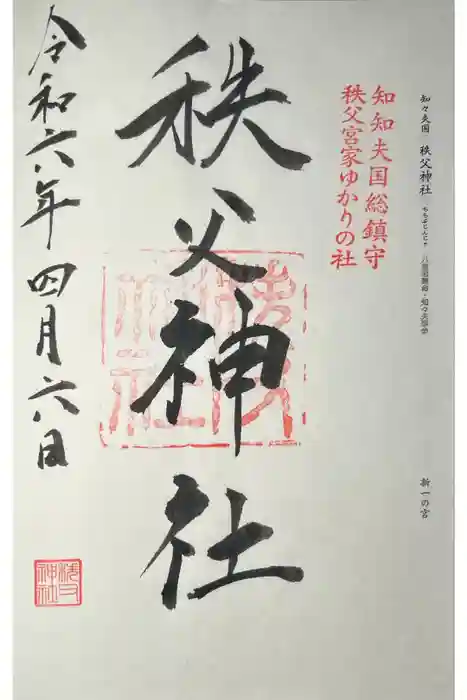 知々夫国 秩父神社 ちちぶじんじゃ
新一の宮
知知夫国総鎮守
秩父宮家ゆかりの社
秩父神社
令和六年四月六日